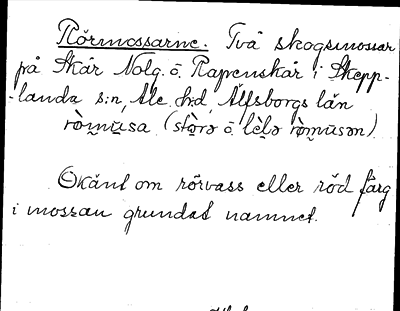 Rörmossarne. Två skogsmossar
på Skår Nolg. o. Rapenskår i Skepp-
-landa s:n, Ale h:d, Älfsborgs län
ròmusa (stòrə o lèlə ròmusən)
Okänt om rörvass eller röd färg
i mossan grundat namnet.